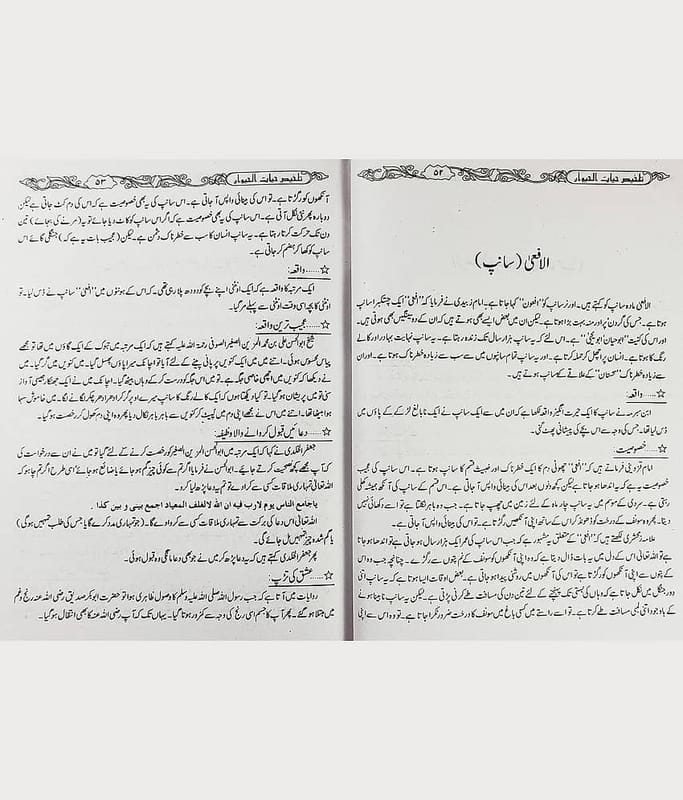 تلخیص حیات الحیوان
۵۲
الافعیٰ (سانپ)
الافعیٰ مادہ سانپ کو کہتے ہیں۔ اور نر سانپ کو "افعون" کہا جاتا ہے۔ امام زبیدی نے فرمایا کہ "افعیٰ" ایک چتکبرا سانپ
ہوتا ہے۔ جس کی گردن پتلی اور منہ بہت بڑا ہوتا ہے۔ لیکن ان میں بعض ایسے بھی ہوتے ہیں کہ ان کے دو سینگیں بھی ہوتی ہیں۔
اور اس کی کنیت "ابوحیان، ابویحییٰ" ہے۔ اس لئے کہ یہ سانپ ہزار سال تک زندہ رہتا ہے۔ یہ سانپ نہایت بہادر اور کالے
رنگ کا ہوتا ہے۔ انسان پر اچھل کر حملہ کرتا ہے۔ اور یہ سانپ تمام سانپوں میں سب سے زیادہ خطرناک ہوتا ہے۔ اور ان
سے زیادہ خطرناک "سجستان" کے علاقے کے سانپ ہوتے ہیں۔
☆……واقعہ:
ابن سبرمہ نے سانپ کا ایک حیرت انگیز واقعہ لکھا ہے کہ ان میں سے ایک سانپ نے ایک نابالغ لڑکے کے پاؤں میں
ڈس لیا تھا۔ جس کی وجہ سے اس بچے کی پیشانی پھٹ گئی۔
☆……خصوصیت:
امام قزوینی فرماتے ہیں کہ "افعیٰ" چھوٹی دم کا ایک خطرناک اور خبیث قسم کا سانپ ہوتا ہے۔ اس سانپ کی عجیب
خصوصیت یہ ہے کہ یہ اندھا ہو جاتا ہے لیکن کچھ دنوں بعد اس کی بینائی واپس آ جاتی ہے۔ اس قسم کے سانپ کی آنکھ ہمیشہ کھلی
رہتی ہے۔ سردی کے موسم میں یہ سانپ چار ماہ کے لئے زمین میں چھپ جاتا ہے۔ جب وہ باہر نکلتا ہے تو اسے دکھائی نہیں
دیتا۔ پھر وہ سونف کے درخت کو ڈھونڈ کر اس کے ساتھ اپنی آنکھیں رگڑتا ہے۔ تو اس کی بینائی واپس آ جاتی ہے۔
علامہ زمخشری لکھتے ہیں کہ "افعیٰ" کے متعلق یہ مشہور ہے کہ جب اس سانپ کی عمر ایک ہزار سال ہو جاتی ہے تو اندھا ہو جاتا
ہے تو اللہ تعالیٰ اس کے دل میں یہ بات ڈال دیتا ہے کہ وہ اپنی آنکھوں کو سونف کے نم پتوں سے رگڑے۔ چنانچہ جب وہ اس
کے پتوں سے اپنی آنکھوں کو رگڑتا ہے تو اس کی آنکھوں میں روشنی پیدا ہو جاتی ہے۔ بعض اوقات ایسا ہوتا ہے کہ یہ سانپ اتنی
دور جنگل میں نکل جاتا ہے کہ وہاں کی بستی تک پہنچنے کے لئے تین دن کی مسافت طے کرنی پڑتی ہے۔ لیکن یہ سانپ نابینا ہونے
کے باوجود اتنی لمبی مسافت طے کرتا ہے۔ تو اسے راستے میں کسی باغ میں سونف کا درخت ضرور ٹکرا جاتا ہے۔ تو وہ اس سے اپنی
تلخیص حیات الحیوان
۵۳
آنکھوں کو رگڑتا ہے۔ تو اس کی بینائی واپس آ جاتی ہے۔ اس سانپ کی یہ بھی خصوصیت ہے کہ اس کی دم کٹ جاتی ہے لیکن
دوبارہ پھر نئی نکل آتی ہے۔ اس سانپ کی یہ بھی خصوصیت ہے کہ اگر اس سانپ کو کاٹ دیا جائے تو یہ (مرنے کی بجائے) تین
دن تک حرکت کرتا رہتا ہے۔ یہ سانپ انسان کا سب سے خطرناک دشمن ہے۔ لیکن (عجیب بات یہ ہے کہ) جنگلی گائے اس
سانپ کو کھا کر ہضم کر جاتی ہے۔
☆……واقعہ:
ایک مرتبہ کا واقعہ ہے کہ ایک اونٹنی اپنے بچے کو دودھ پلا رہی تھی۔ کہ اس کے ہونٹوں میں "افعیٰ" سانپ نے ڈس لیا۔ تو
اونٹنی کا بچہ اسی وقت اونٹنی سے پہلے مر گیا۔
☆……عجیب ترین واقعہ:
شیخ ابوالحسن علی بن محمد المزین الصغیر الصوفی رحمۃ اللہ علیہ کہتے ہیں کہ ایک مرتبہ میں تبوک کے ایک گاؤں میں تھا تو مجھے
پیاس محسوس ہوئی۔ اتنے میں میں ایک کنویں پر پانی پینے کے لئے آیا تو اچانک میرا پاؤں پھسل گیا۔ میں کنویں میں گر گیا۔ میں
نے دیکھا کہ کنویں میں اچھی خاصی جگہ ہے۔ تو میں اس جگہ کو درست کر کے وہاں بیٹھ گیا۔ اچانک میں نے ایک جھنکار جیسی آواز
سنی تو میں پریشان ہو گیا۔ تو کیا دیکھتا ہوں کہ ایک کالے رنگ کا سانپ میرے اوپر گر کر ادھر ادھر چکر لگانے لگا۔ میں خاموش سہما
ہوا بیٹھا تھا۔ اتنے میں اس نے مجھے اپنی دم میں لپیٹ کر کنویں سے باہر لا کر نکال دیا پھر وہ اپنی دم کھول کر رخصت ہو گیا۔
☆……دعائیں قبول کروانے والا وظیفہ:
جعفر الخلدی نے کہا کہ ایک مرتبہ میں ابوالحسن المزین الصغیر کو رخصت کرنے کے لئے گیا تو میں نے ان سے درخواست کی
کہ آپ مجھے کچھ نصیحت کرتے جایئے۔ ابوالحسن نے فرمایا اگر تم سے کوئی چیز گم ہو جائے یا ضائع ہو جائے اسی طرح اگر تم چاہو کہ
اللہ تعالیٰ تمہاری ملاقات کسی سے کرا دے تو تم یہ دعا پڑھ لیا کرو۔
یاجامع الناس یوم لارب فیہ ان اللہ لاتخلف المعیاد اجمع بینی و بین کذا۔
اللہ تعالیٰ اس دعا کی برکت سے تمہاری ملاقات کسی سے کروا دے گا۔ (جو تمہاری مدد کرے گا یا جس کی طلب تمہیں ہو گی)
یا گم شدہ چیز تمہیں مل جائے گی۔
پھر جعفر الخلدی کہتے ہیں کہ یہ دعا پڑھ کر میں نے جو بھی دعا مانگی وہ قبول ہوئی۔
☆……عشق کی تڑپ:
روایات میں آتا ہے کہ جب رسول اللہ صلی اللہ علیہ وسلم کا وصول ظاہری ہوا تو حضرت ابوبکر صدیق رضی اللہ عنہ رنج و غم
میں مبتلا ہو گئے۔ پھر آپ کا جسم اسی رنج کی وجہ سے کمزور ہوتا گیا۔ یہاں تک کہ آپ رضی اللہ عنہ کا بھی انتقال ہو گیا۔